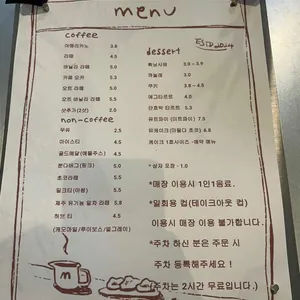 menu
ESTD 2024
coffee
아메리카노 3.8
라떼 4.5
바닐라 라떼 5.0
카페 모카 5.3
오트 라떼 5.0
오트 바닐라 라떼 5.5
샷추가(2샷) 2.0
non-coffee
우유 2.5
아이스티 4.5
골드메달(애플주스) 4.5
본다바그(핑크) 5.0
초코라떼 5.5
밀크티(아쌈) 5.5
제주 유기농 말차 라떼 5.8
허브 티 4.5
(캐모마일/루이보스/얼그레이)
dessert
휘낭시에 3.0 – 3.9
까눌레 3.0
쿠키 3.8 – 4.5
에그타르트 4.0
단호박 타르트 5.3
뮤트파이 (미트파이) 7.5
뮤케이크 (마틸다 초코) 4.8
케이크 1호사이즈 - 예약 메뉴
* 상자 포장 - 1.0
*매장 이용시 1인1음료.
*일회용 컵(테이크아웃 컵)
이용시 매장 이용 불가합니다.
*주차 하신 분은 주문 시
주차 등록해주세요!
(주차는 2시간 무료입니다.)
m